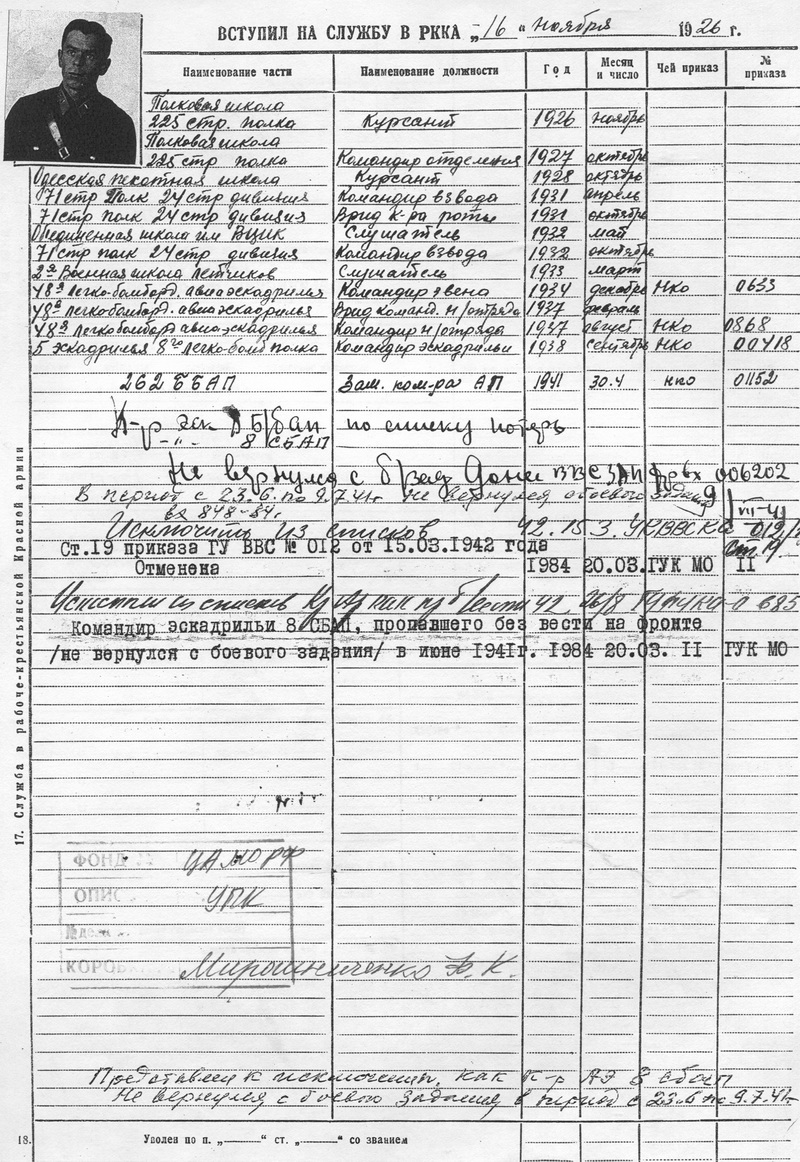 ВСТУПИЛ НА СЛУЖБУ В РККА „16“ ноября 1926 г.
Наименование части Наименование должности Год Месяц и число Чей приказ № приказа
Полковая школа
225 стр. полка Курсант 1926 ноябрь
Полковая школа
225 стр полка Командир отделения 1927 октябрь
Одесская пехотная школа Курсант 1928 октябрь
71 стр Полк 24 стр дивизия Командир взвода 1931 апрель
71 стр полк 24 стр дивизия Врид к-ра роты 1931 октябрь
Объединенная школа им ВЦИК Слушатель 1932 май
71 стр полк 24 стр дивизия Командир взвода 1932 октябрь
2я Военная школа Летчиков Слушатель 1933 март
48я легко-бомбард. авиаэскадрилья Командир звена 1934 декабрь НКО 0633
48я легкобомбард. авиаэскадрилья Врид команд. н/отряда 1937 февраль
48я легкобомбард авиаэскадрилья Командир н/отряда 1937 август НКО 0868
5 эскадрилья 8го легко-бомб полка Командир эскадрильи 1938 сентябрь НКО 00418
262 ББАП Зам. ком-ра АП 1941 30.4 нко 01152
К-р эск по списку потерь
-"- 8 СБАП
Не вернулся с ВВС 006202
В период с 23.6. по 9.7.41г не вернулся с боевого задания
вх 848-84г. VII-41
Исключить из списков 42. 15.3. 012
Ст.19 приказа ГУ ВВС № 012 от 15.03.1942 года ст. 19
Отменена 1984 20.03. ГУК МО II
из списков как пр б/вести 42 26/8 0685
Командир эскадрильи 8 СБАП, пропавшего без вести на фронте
/не вернулся с боевого задания/ в июне 1941г. 1984 20.03. II ГУК МО
17. Служба в рабоче-крестьянской Красной армии
ФОНД ЦАМО РФ
ОПИС УПК
№ дела
КОРОБ Мирошниченко
Представлен к исключению, как к-р АЭ 8 сбап
Не вернулся с боевого задания в период с 23.6 по 9.7.41г
18. Уволен по п. „ “ ст. „ “ со званием